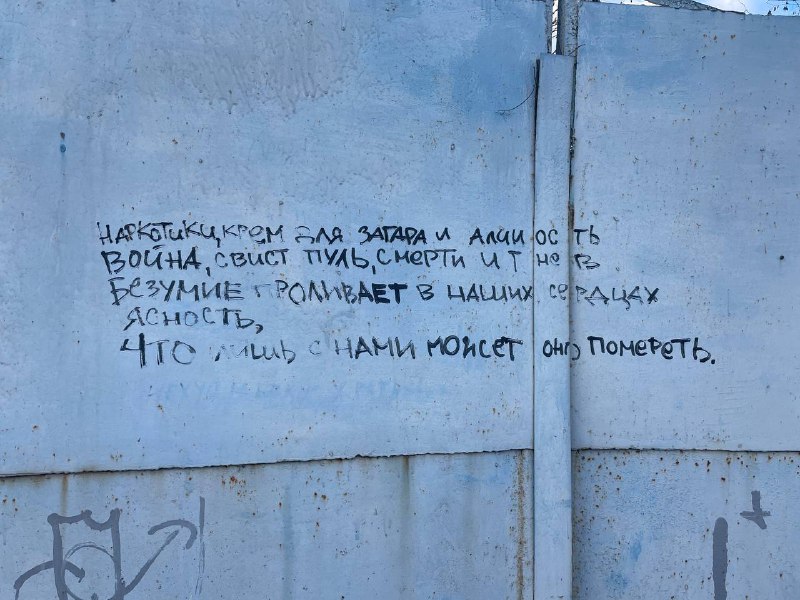 НАРКОТИКИ, КРЕМ ДЛЯ ЗАГАРА И АЛЧНОСТЬ
ВОЙНА, СВИСТ ПУЛЬ, СМЕРТИ И ГНЕВ
БЕЗУМИЕ ПРОЛИВАЕТ В НАШИХ СЕРДЦАХ
ЯСНОСТЬ,
ЧТО ЛИШЬ С НАМИ МОЖЕТ ОНО ПОМЕРЕТЬ.